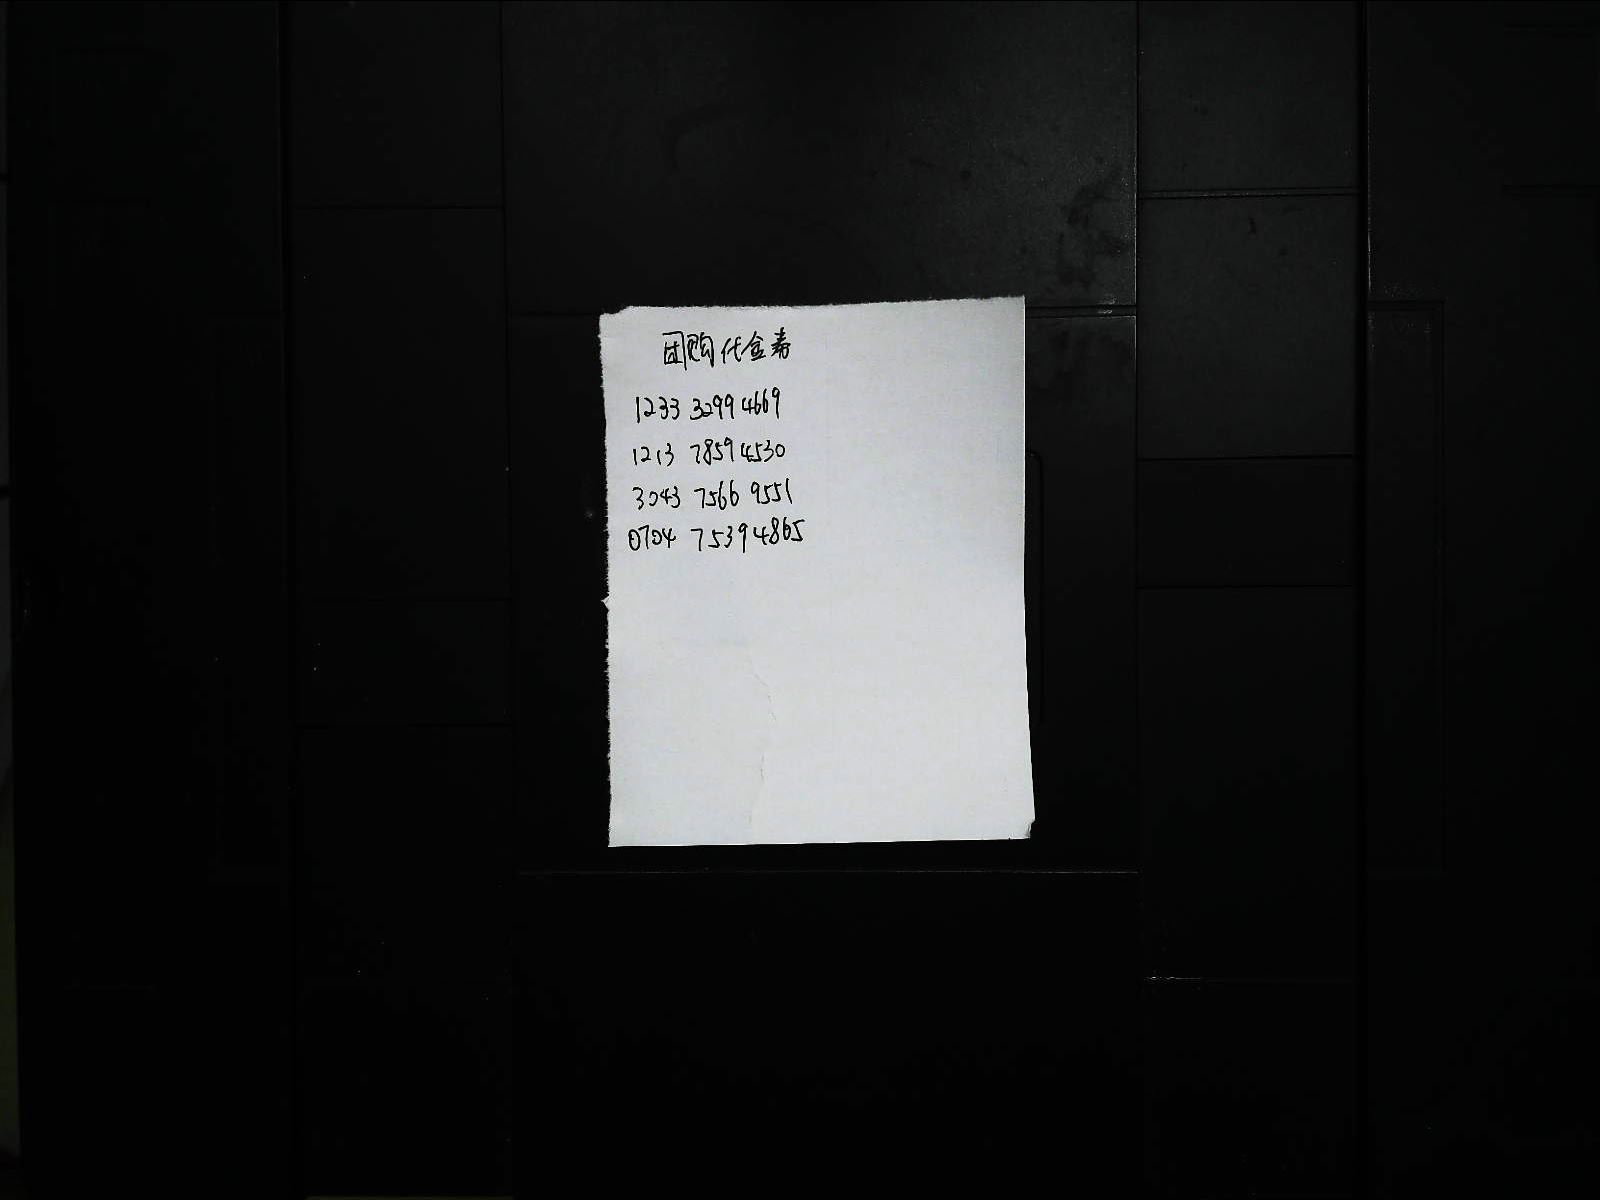 团购代金券
1233 3299 4669
1213 7859 4530
3043 7566 9551
0704 7539 4865